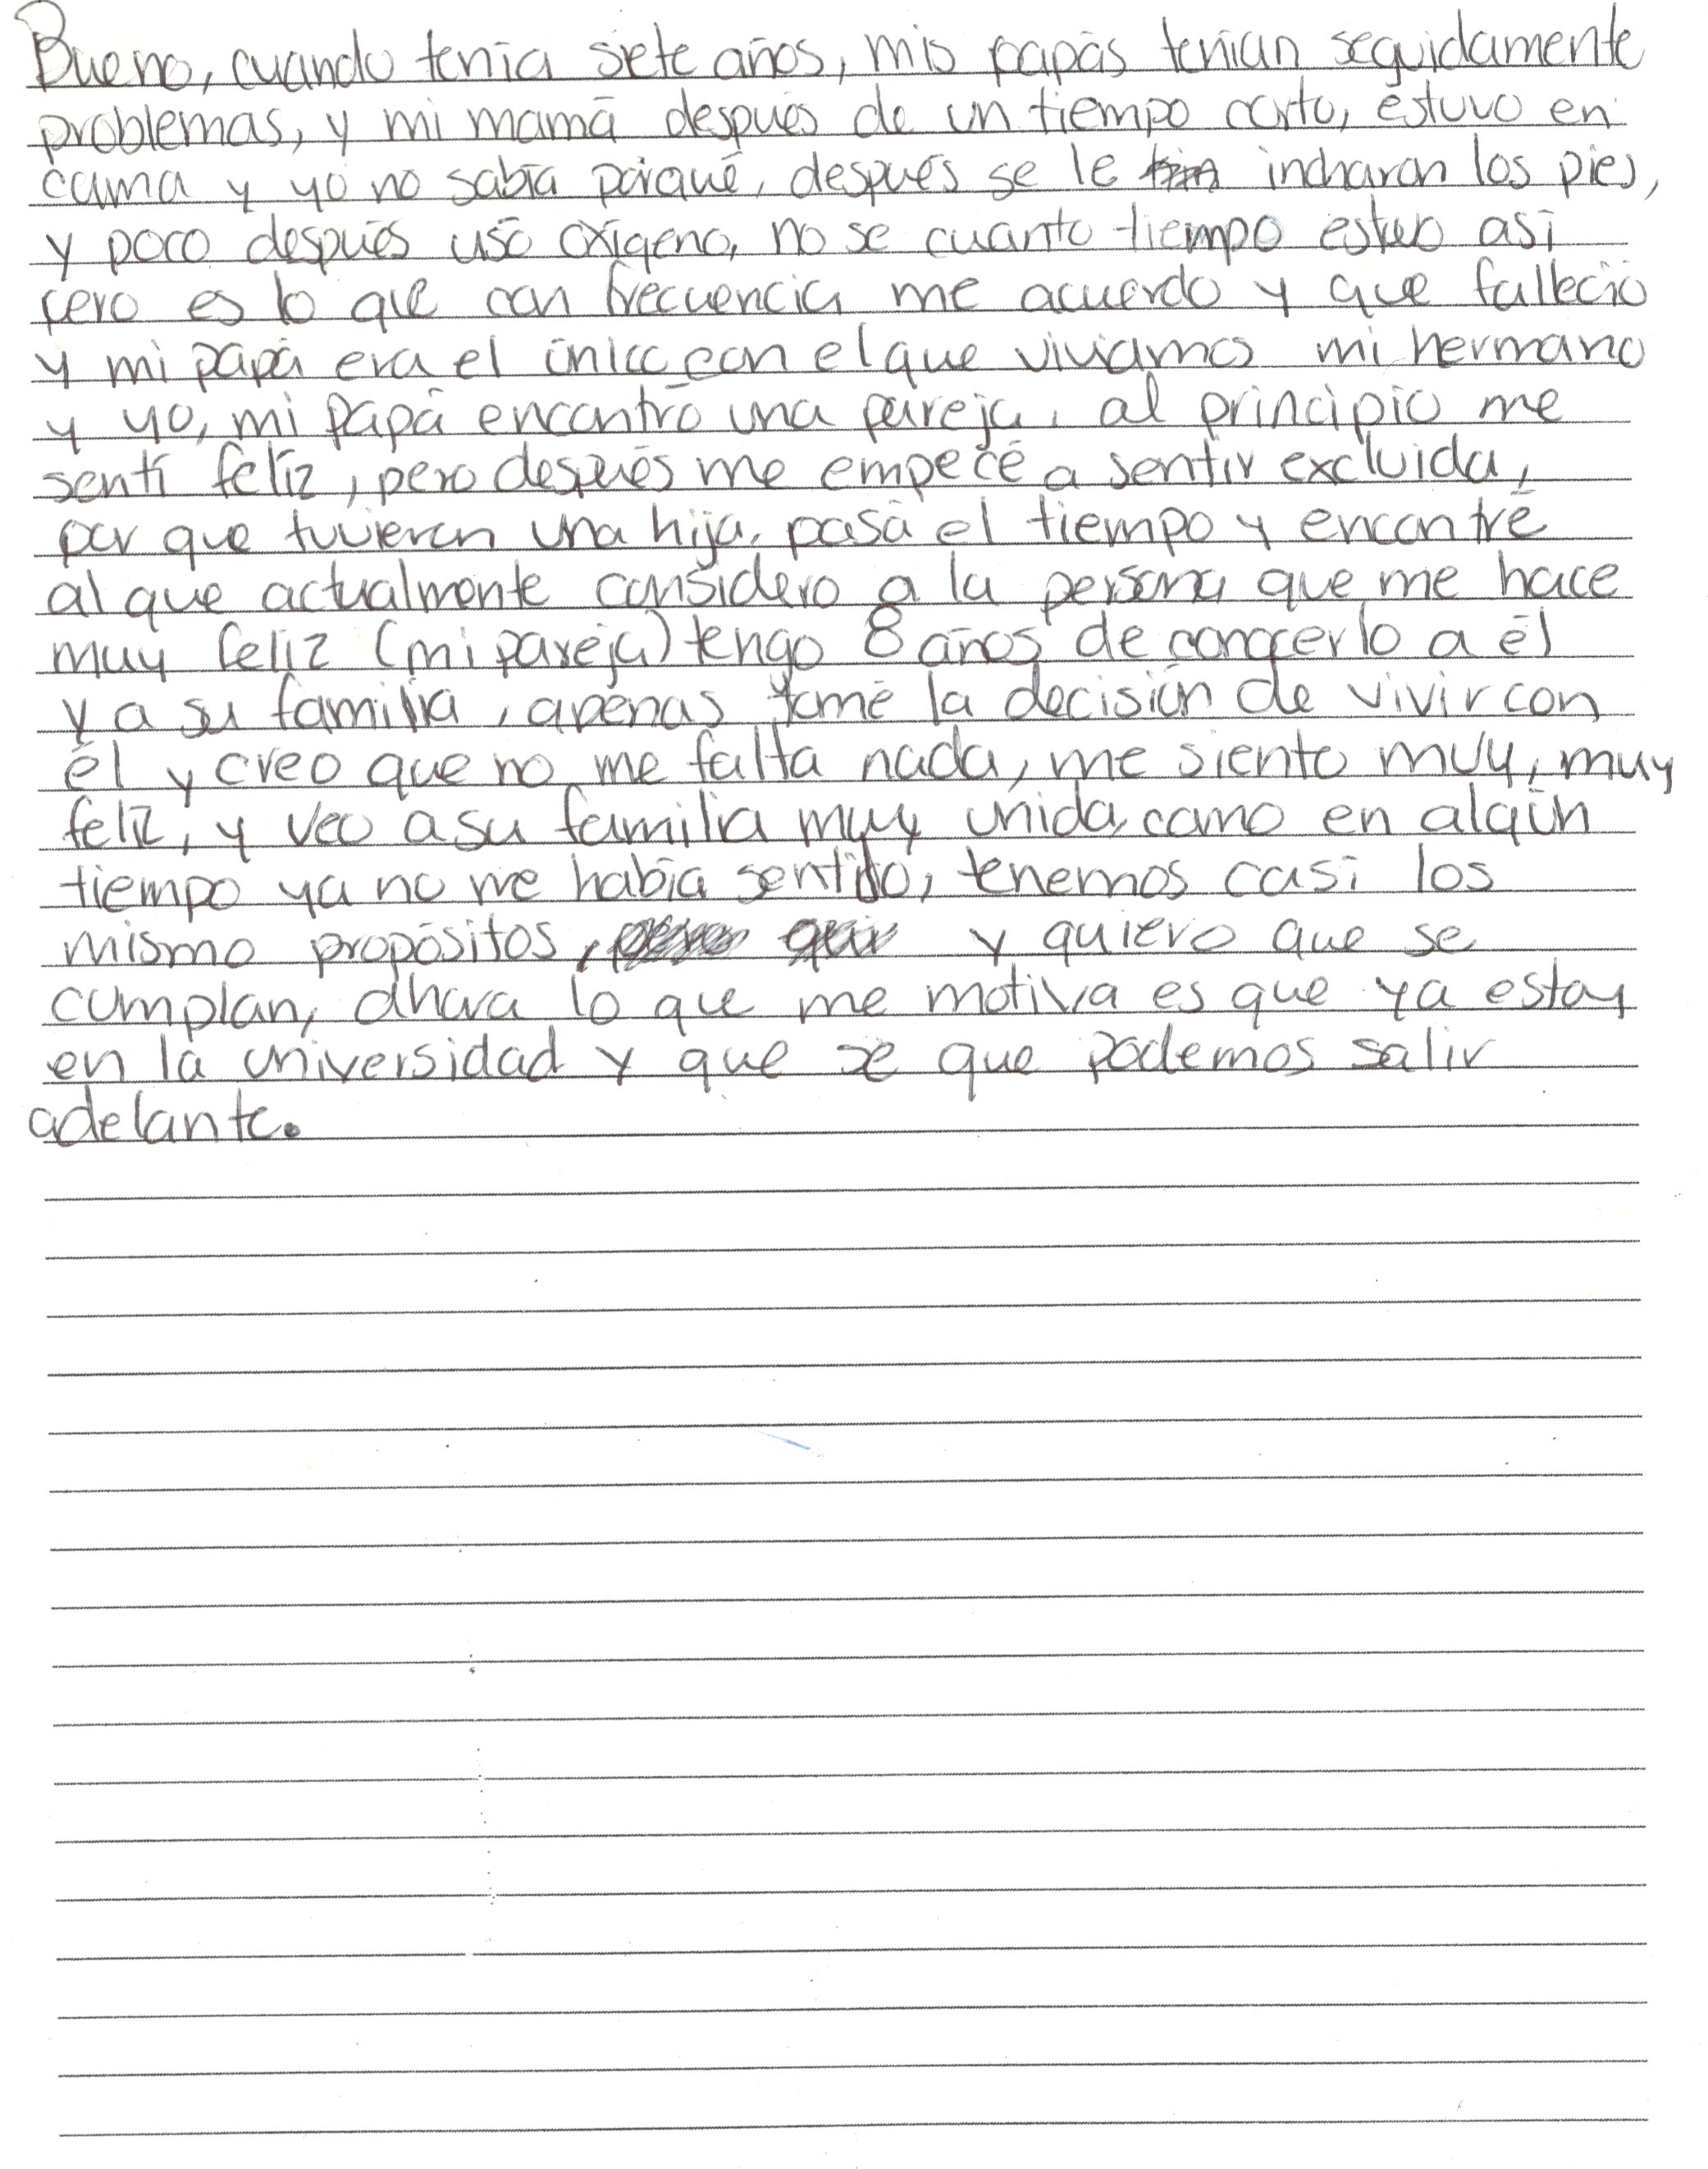 Bueno, cuando tenía siete años, mis papás tenían seguidamente
problemas, y mi mamá después de un tiempo corto, estuvo en
cama y yo no sabía porqué, después se le incharon los pies,
y poco después usó oxígeno, no se cuanto tiempo estuvo así
pero es lo que con frecuencia me acuerdo y que falleció
y mi papá era el único con el que vivíamos mi hermano
y yo, mi papá encontró una pareja, al principio me
sentí felíz, pero después me empecé a sentir excluida,
por que tuvieron una hija, pasó el tiempo y encontré
al que actualmente considero a la persona que me hace
muy feliz (mi pareja) tengo 8 años de conocerlo a él
y a su familia, apenas tomé la decisión de vivir con
él y creo que no me falta nada, me siento muy, muy
felíz, y veo a su familia muy unida, como en algún
tiempo ya no me había sentido, tenemos casi los
mismo propósitos, y quiero que se
cumplan, ahora lo que me motiva es que ya estoy
en la universidad y que se que podemos salir
adelante.